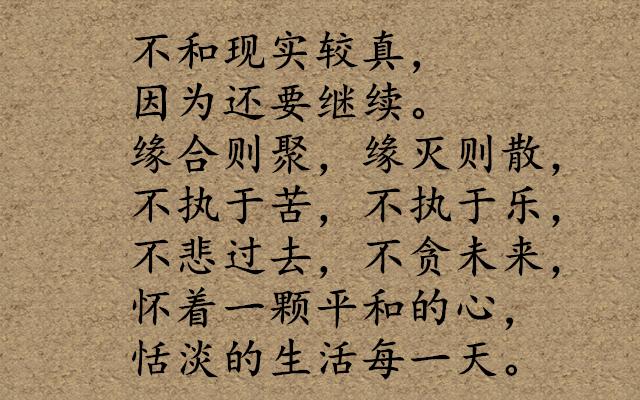 不和现实较真，
因为还要继续。
缘合则聚，缘灭则散，
不执于苦，不执于乐，
不悲过去，不贪未来，
怀着一颗平和的心，
恬淡的生活每一天。